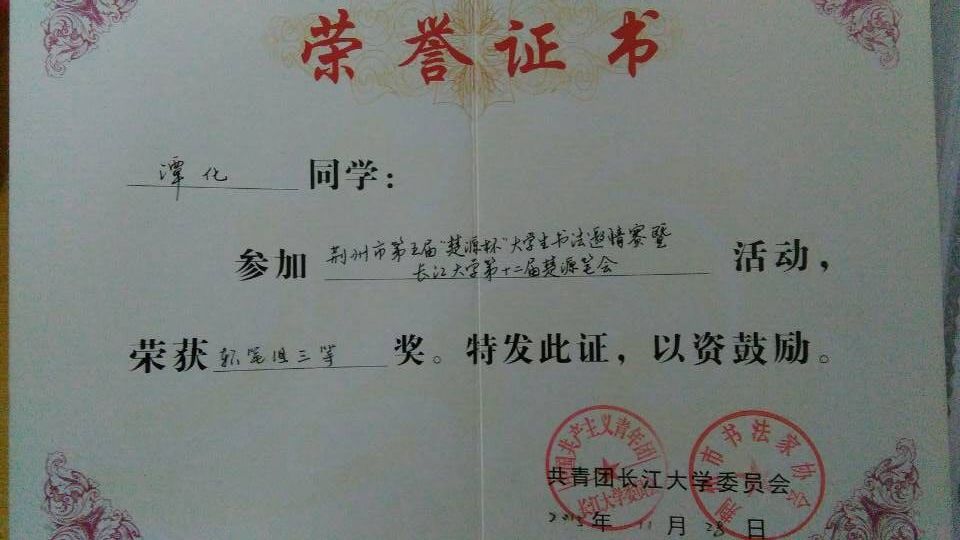 荣誉证书
潭化 同学:
参加 荆州市第五届"楚源杯"大学生书法邀请赛暨
长江大学第十二届楚源笔会 活动,
荣获 软笔组三等 奖。特发此证,以资鼓励。
中国共产主义青年团
长江大学委员会
荆州市书法家协会
共青团长江大学委员会
2015年 11月 28日